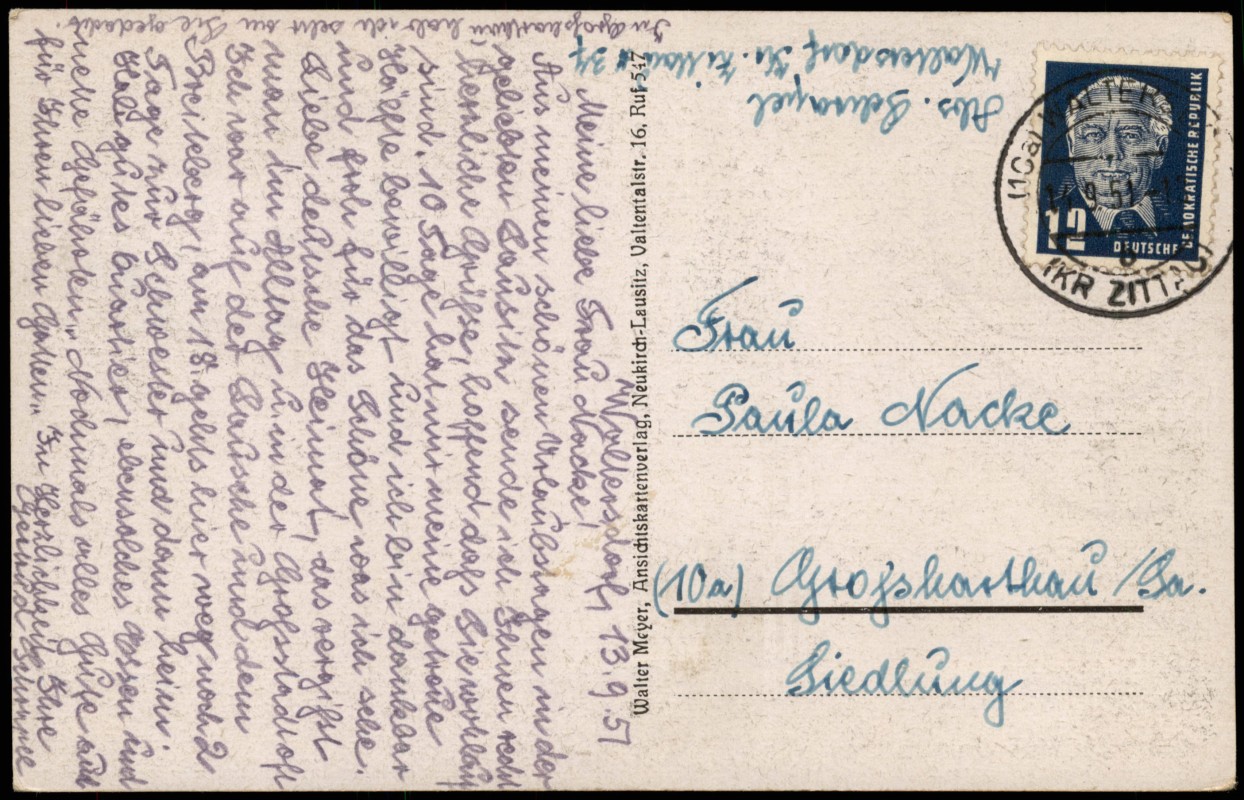 Waltersdorf, 13.9.51
Meine liebe Frau Nacke!
Aus meinen schönen Urlaubstagen in der
geliebten Lausitz sende ich Ihnen recht
herzliche Grüße, hoffend daß Sie wohlauf
sind. 10 Tage hat mir meine getreue
bewilligt und ich bin dankbar
und froh für das Schöne was ich sehe.
Liebe deutsche Heimat, das vergißt
man im Alltag u. in der Großstadt oft
Ich war auf der Lausche und dem
am 18. gehts hier weg noch 2
Tage zur Schwester und dann heim.
Hab gutes Quartier, ebensolches Essen und
Nochmals alles Gute auch
für Ihren lieben Gatten. In Herzlichkeit Ihre
In Großharthau hab ich sehr an Sie gedacht.
Walter Meyer, Ansichtskartenverlag, Neukirch-Lausitz, Valtentalstr. 16, Ruf 547
Abs.
Waltersdorf Kr. Zittau 34
12
DEUTSCHE
DEMOKRATISCHE REPUBLIK
(10a) WALTER
9.51
b
(KR ZITTAU)
Frau
Paula Nacke
(10a) Großharthau /Sa.
Siedlung